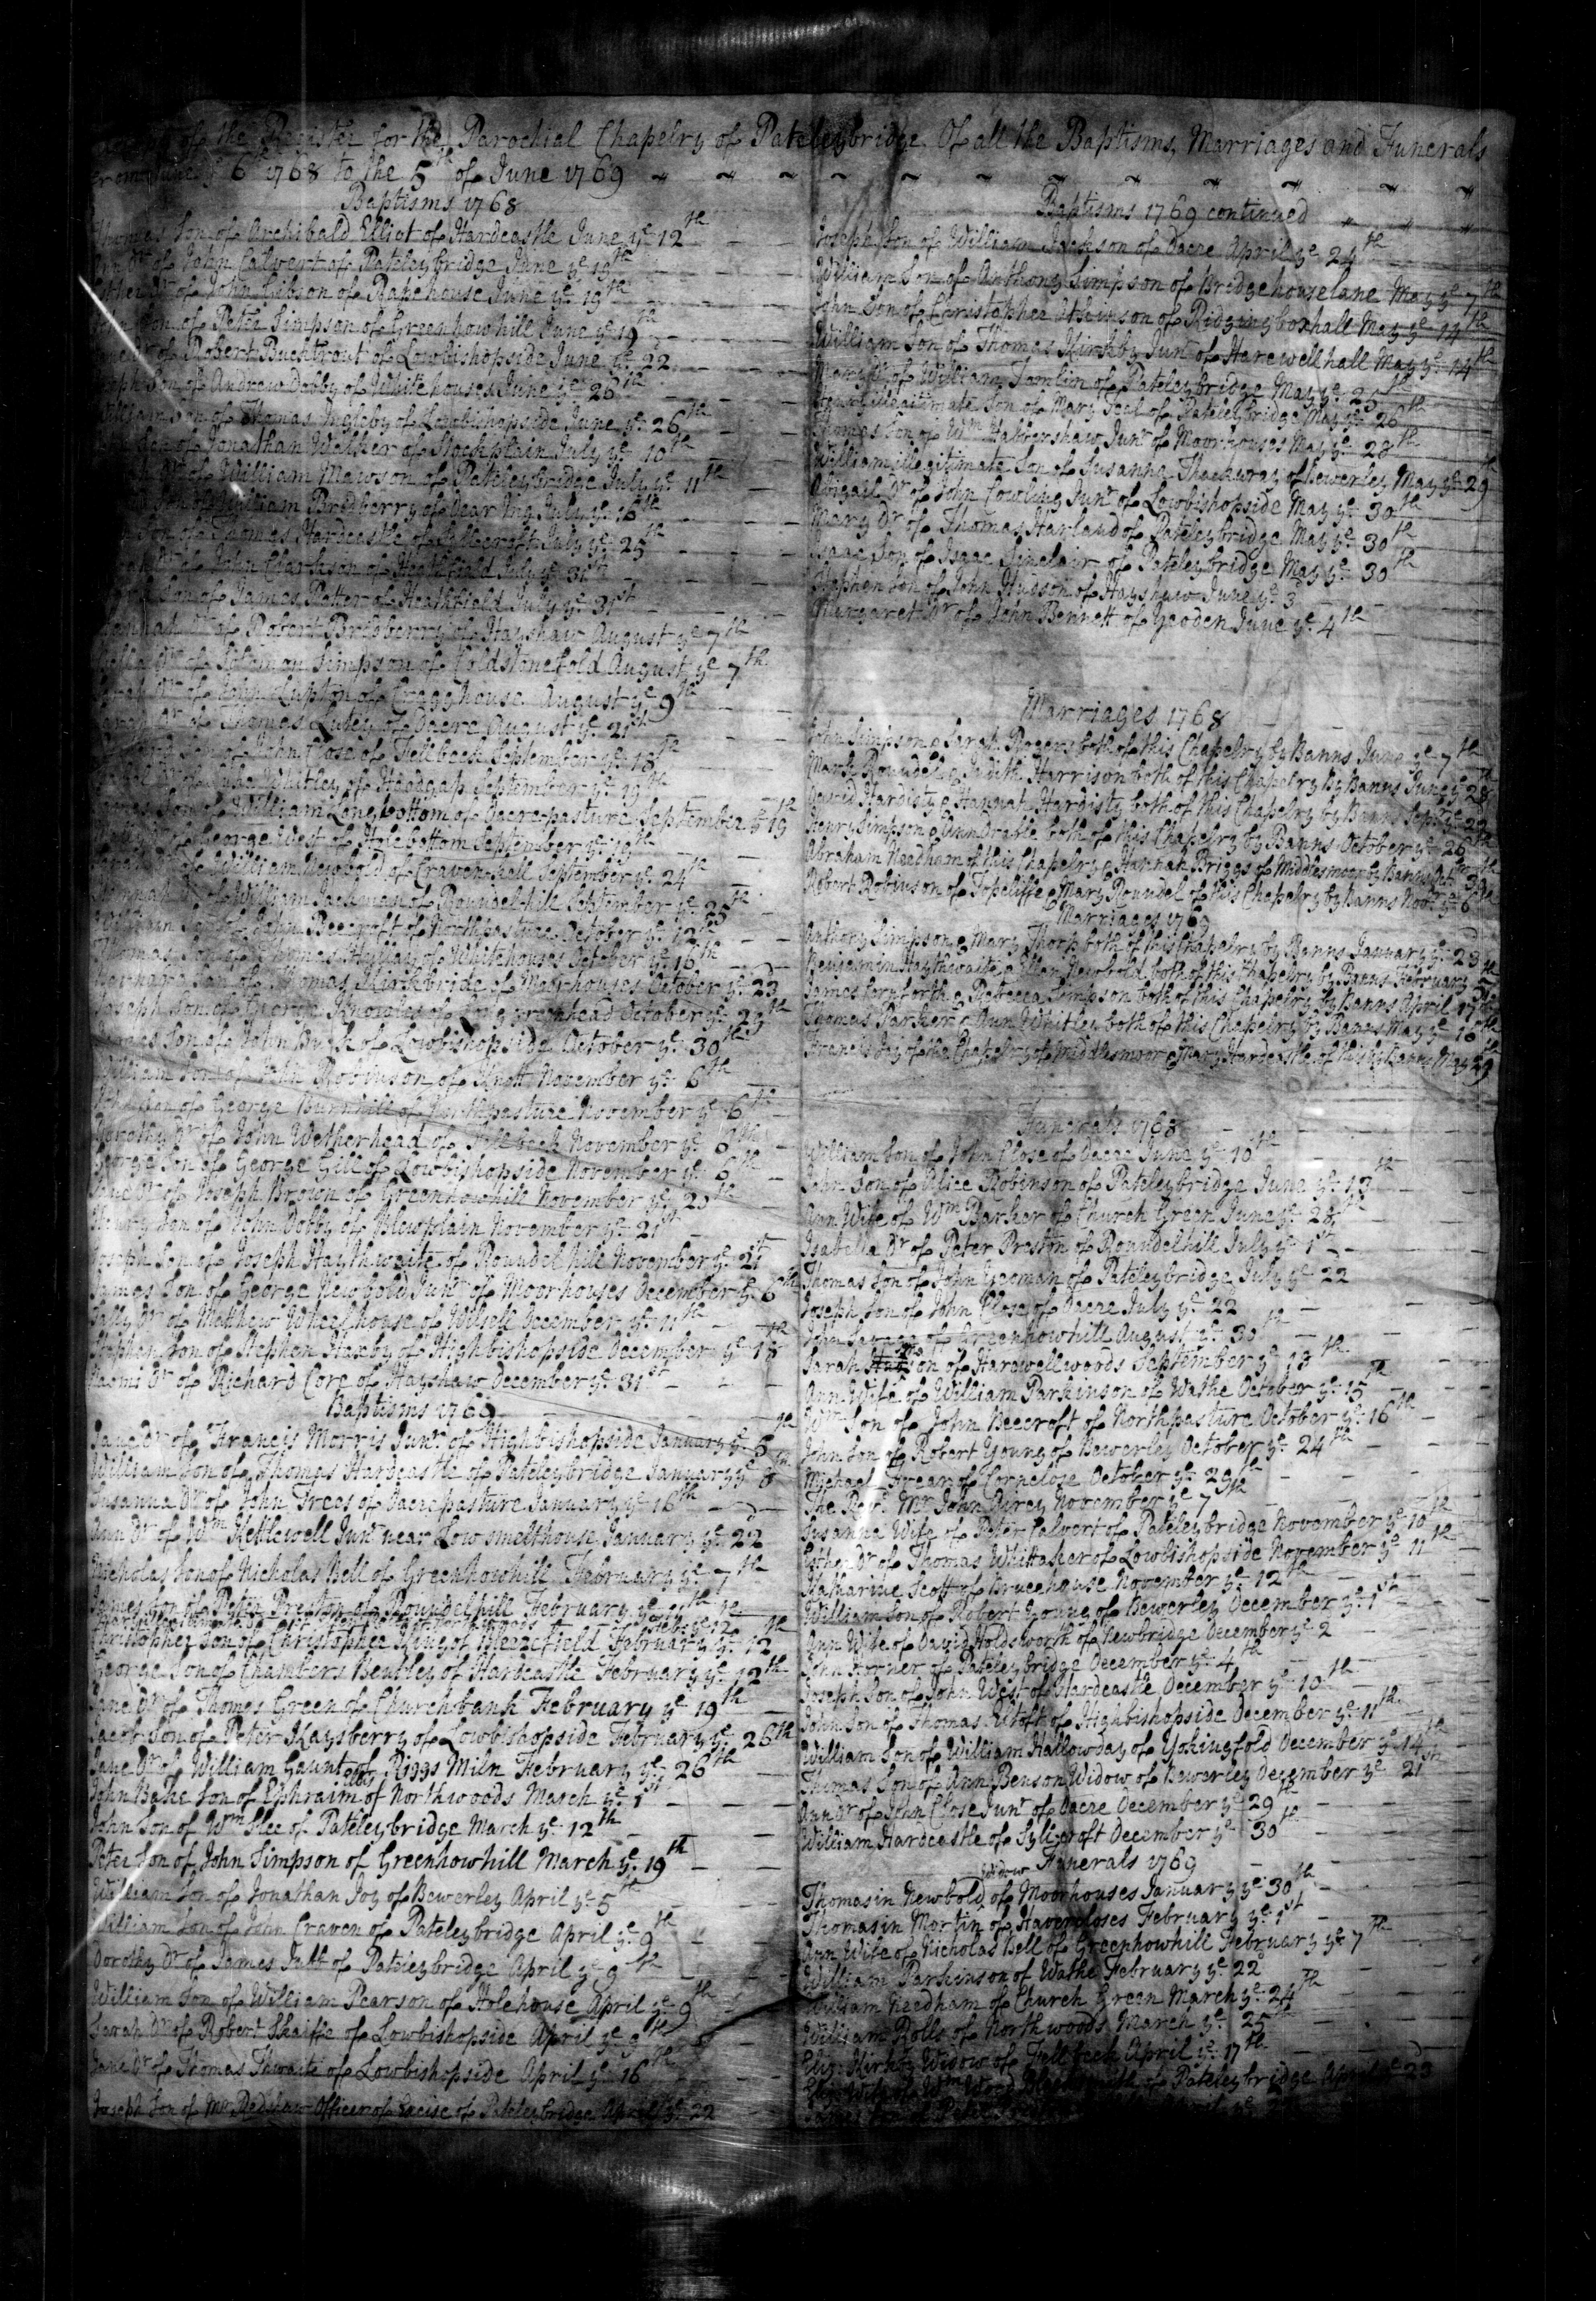 of the Register for the Parochial Chapelry of Pateleybridge Of all the Baptisms, Marriages and Funerals
From June ye 6th 1768 to the 5th of June 1769
Baptisms 1768
Thomas Son of Archibald Elliot of Hardcastle June ye 12th
Ann Dr of John Calvert of Pateleybridge June ye 19th
Dr of John Gibson of Rakehouse June ye 19th
Son of Peter Simpson of Greenhowhill June ye 19th
Dr of Robert Bucktrout of Lowbishopside June ye 22
Joseph Son of Andrew Dobby of Whitehouses June ye 26th
William Son of Thomas Ingleby of Lowbishopside June ye 26th
of Jonathan Walker of Stockplain July ye 10th
Dr of William Mawson of Pateleybridge July ye 11th
Son of William Bradberry of July ye 16th
Son of Thomas Hardcastle of July ye 25th
Dr of John Clarkson of Heathfield July ye 31st
Son of James Potter of Heathfield July ye 31st
Hannah Dr of Robert Bradberry of Hayshaw August ye 7th
Dr of Solomon Simpson of Coldstonefold August ye 7th
Dr of John Lupton of Cragghouse August ye 9th
Sarah Dr of Thomas of Dacre August ye 21st
Son of John Close of Fellbeck September ye 18th
Dr of Luke Whitley of Headgap September ye 19th
James Son of William Longbottom of Dacre-pasture September ye 19th
Dr of George West of Holebottom September ye 19th
Sarah Dr of William Newbould of Craven-hall September ye 24th
Hannah Dr of William Jackman of Roundelhill September ye 25th
William Son of John Beecroft of Northpasture October ye 12th
Thomas Son of Thomas Hullay of Whitehouses October ye 16th
Barnard Son of Thomas Kirkbride of Moorhouses October ye 23
Joseph Son of George Knowles of October ye 23th
James Son of John Pugh of Lowbishopside October ye 30th
William Son of John Robinson of Knott November ye 6th
John Son of George Burnhill of Northpasture November ye 6th
Dorothy Dr of John Wetherhead of Fellbeck November ye 6th
George Son of George Gill of Lowbishopside November ye 6th
Jane Dr of Joseph Brown of Greenhowhill November ye 20th
Henry Son of John Dobby of Blowplain November ye 21st
Joseph Son of Joseph Haythwaite of Roundelhill November ye 21st
James Son of George Newbold Junr of Moorhouses December ye 6th
Sally Dr of Matthew Wheelhouse of Wilsell December ye 11th
Stephen Son of Stephen Haxby of Highbishopside December ye 18th
Naomi Dr of Richard Core of Hayshaw December ye 31st
Baptisms 1769
Jane Dr of Francis Morris Junr of Highbishopside January ye 6th
William Son of Thomas Hardcastle of Pateleybridge January ye 8th
Susanna Dr of John Trees of Dacrepasture January ye 16th
Ann Dr of Wm Kettlewell Junr near Low smelthouse January ye 22
Nicholas Son of Nicholas Bell of Greenhowhill February ye 7th
James Son of Peter Preston of Roundelhill February ye 11th
Christopher Son of Christopher King of Bleazefield February ye 12th
George Son of Chambers Bentley of Hardcastle February ye 12th
Jane Dr of Thomas Green of Churchbank February ye 19th
Jacob Son of Peter Kaysberry of Lowbishopside February ye 26th
Jane Dr of William Gaunt of Riggs Miln February ye 26th
John Bake Son of Ephraim Ellis of Northwoods March ye 1st
John Son of Wm Slee of Pateleybridge March ye 12th
Peter Son of John Simpson of Greenhowhill March ye 19th
William Son of Jonathan Joy of Bewerley April ye 5th
William Son of John Craven of Pateleybridge April ye 9th
Dorothy Dr of James Jubb of Pateleybridge April ye 9th
William Son of William Pearson of Holehouse April ye 9th
Sarah Dr of Robert Skaiffe of Lowbishopside April ye 9th
Jane Dr of Thomas Thwaite of Lowbishopside April ye 16th
Joseph Son of Mr Redshaw Officer of Excise of Pateleybridge April ye 22
Baptisms 1769 continued
Joseph Son of William Jackson of Dacre April ye 24th
William Son of Anthony Simpson of Bridgehouselane May ye 7th
John Son of Christopher Atkinson of Ridgingboxhall May ye 14th
William Son of Thomas Kirkby Junr of Harewellhall May ye 14th
Mary Dr of William Tomlin of Pateleybridge May ye 25th
Henry illegitimate Son of Mary Teal of Pateleybridge May ye 26th
Thomas Son of Wm Habbershaw Junr of Moorhouses May ye 28th
William illegitimate Son of Susanna Thackwray of Bewerley May ye 29th
Abigail Dr of John Cowling Junr of Lowbishopside May ye 30th
Mary Dr of Thomas Harland of Pateleybridge May ye 30th
Isaac Son of Isaac Sinclair of Pateleybridge May ye 30th
Stephen Son of John Hudson of Hayshaw June ye 3
Margaret Dr of John Bennett of Yeodon June ye 4th
Marriages 1768
John Simpson & Sarah Rogers both of this Chapelry by Banns June ye 7th
Mark Roundell & Judith Harrison both of this Chapelry By Banns June ye 28th
David Hardisty & Hannah Hardisty both of this Chapelry by Banns Septr ye 29
Henry Simpson & Ann Drable both of this Chapelry by Banns October ye 26th
Abraham Needham of this Chapelry & Hannah Briggs of Middlesmoor by Banns Octr 30th
Robert Robinson of Topcliffe & Mary Roundel of this Chapelry by Banns Novr ye 6th
Marriages 1769
Anthony Simpson & Mary Thorp both of this Chapelry by Banns January ye 23
Benjamin Haythwaite & Ellen Newbold both of this Chapelry by Banns February
James Foryforth & Rebecca Simpson both of this Chapelry by Banns April 17th
Thomas Parker & Ann Whitley both of this Chapelry by Banns May ye 16th
Francis Joy of the Chapelry of Middlesmoor & Mary Hardcastle of this by Banns May 29th
Funerals 1768
William Son of John Close of Dacre June ye 10th
John Son of Alice Robinson of Pateleybridge June ye 19th
Ann Wife of Wm Barker of Church Green June ye 28th
Isabella Dr of Peter Preston of Roundelhill July ye 1st
Thomas Son of John Yeoman of Pateleybridge July ye 22
Joseph Son of John Close of Dacre July ye 22
John Savage of Greenhowhill August ye 30th
Sarah of Harewellwoods September ye 19th
Ann Wife of William Parkinson of Wathe October ye 15th
Wm Son of John Beecroft of Northpasture October ye 16th
John Son of Robert Young of Bewerley October ye 24th
Michael Frear of Cornclose October ye 29th
The Revd Mr John Airey November ye 7th
Susanna Wife of Peter Calvert of Pateleybridge November ye 10th
Esther Dr of Thomas Whittaker of Lowbishopside November ye 11th
Katharine Scott of Brucehouse November ye 12th
William Son of Robert Young of Bewerley December ye 1st
Ann Wife of David Holdsworth of Newbridge December ye 2
John Horner of Pateleybridge December ye 4th
Joseph Son of John West of Hardcastle December ye 10th
John Son of Thomas of Highbishopside December ye 11th
William Son of William Hallowday of Yokingfold December ye 14th
Thomas Son of Ann Benson Widow of Bewerley December ye 21st
Ann Dr of John Close Junr of Dacre December ye 29th
William Hardcastle of Sylicroft December ye 30th
Funerals 1769
Thomasin Newbold Widow of Moorhouses January ye 30th
Thomasin Mortin of Havercloses February ye 1st
Ann Wife of Nicholas Bell of Greenhowhill February ye 7th
William Parkinson of Wathe February ye 22
William Needham of Church Green March ye 24th
William Rolls of Northwoods March ye 25th
Eliz: Kirkby Widow of Fellbeck April ye 17th
Eliz: Wife of Wm Wood of Pateleybridge April ye 23
James Son of Peter